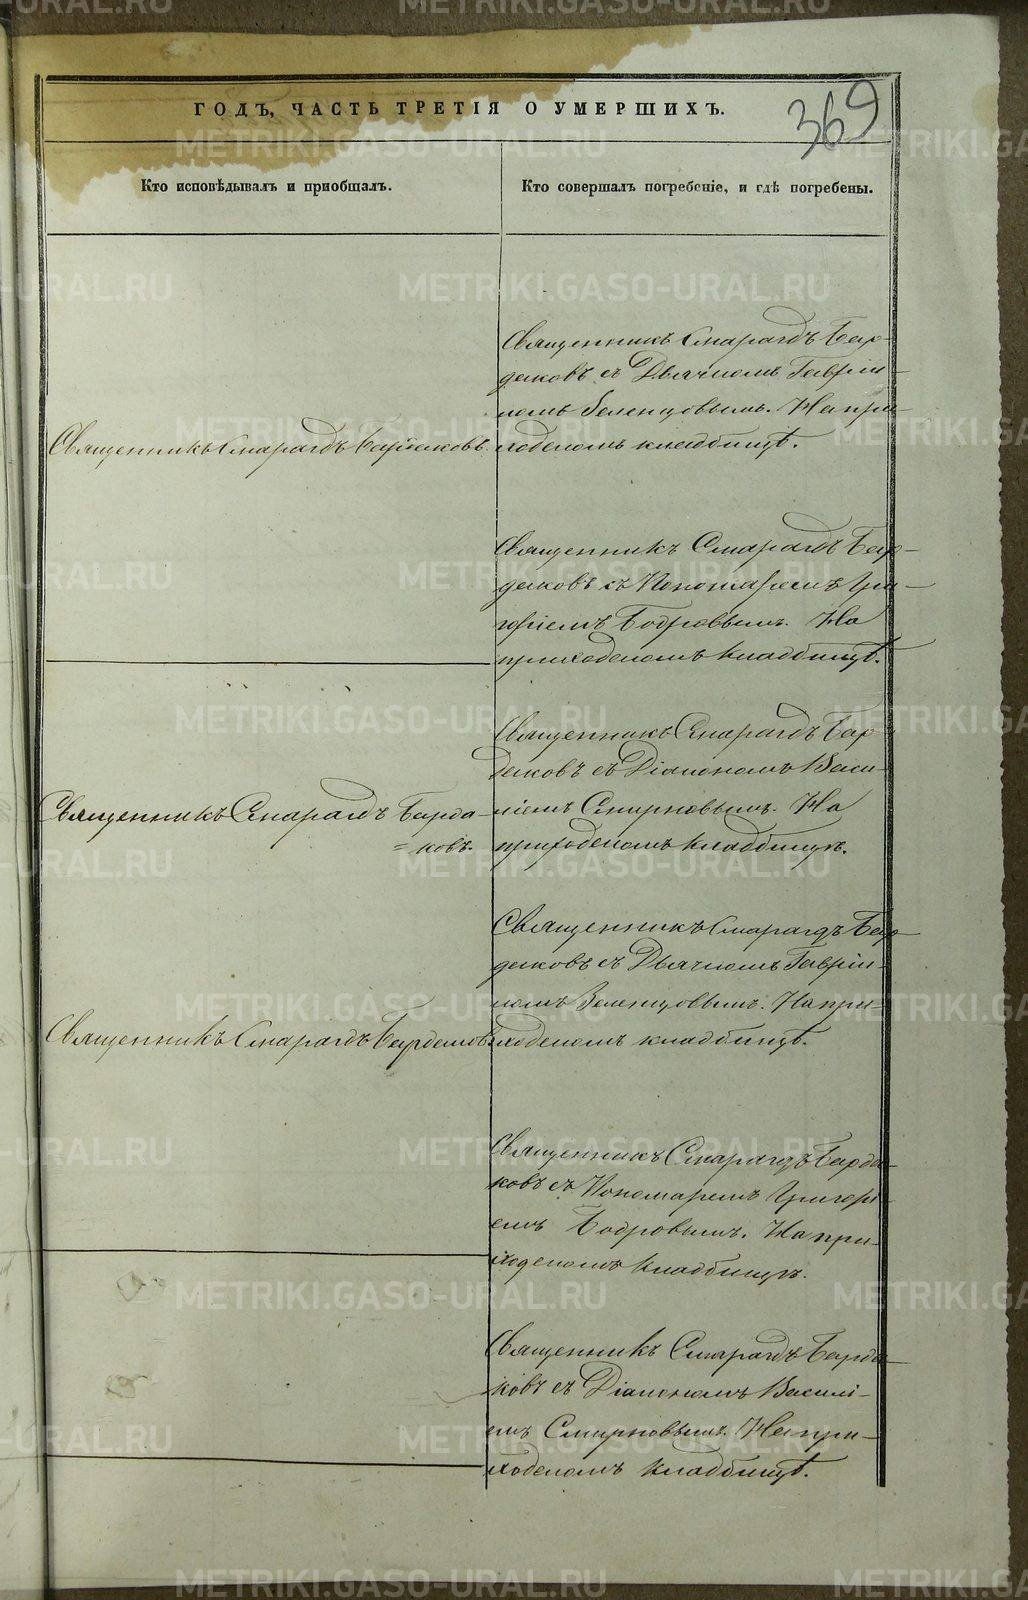 ГОДЪ, ЧАСТЬ ТРЕТІЯ О УМЕРШИХЪ.
369
Кто исповѣдывалъ и приобщалъ.
Кто совершалъ погребеніе, и гдѣ погребены.
Священникъ Смарагдъ Бардаковъ.
Священникъ Смарагдъ Бар-
даковъ съ Дьячкомъ Гаврiи-
ломъ Зеленцовымъ. На при-
ходскомъ кладбищѣ.
Священникъ Смарагдъ Бар-
даковъ съ Пономаремъ Гри-
горіемъ Бодровымъ. На
приходскомъ кладбищѣ.
Священникъ Смарагдъ Барда-
=ковъ.
Священникъ Смарагдъ Бар-
даковъ съ Діакономъ Васи-
ліемъ Смирновымъ. На
приходскомъ кладбищѣ.
Священникъ Смарагдъ Бардаковъ
Священникъ Смарагдъ Бар-
даковъ съ Дьячкомъ Гавріи-
ломъ Зеленцовымъ. На при-
ходскомъ кладбищѣ.
Священникъ Смарагдъ Барда-
ковъ съ Пономаремъ Григорі-
емъ Бодровымъ. На при-
ходскомъ кладбищѣ.
Священникъ Смарагдъ Барда-
ковъ съ Діакономъ Василі-
емъ Смирновымъ. На при-
ходскомъ кладбищѣ.
METRIKI.GASO-URAL.RU